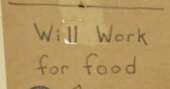 Will Work
for food